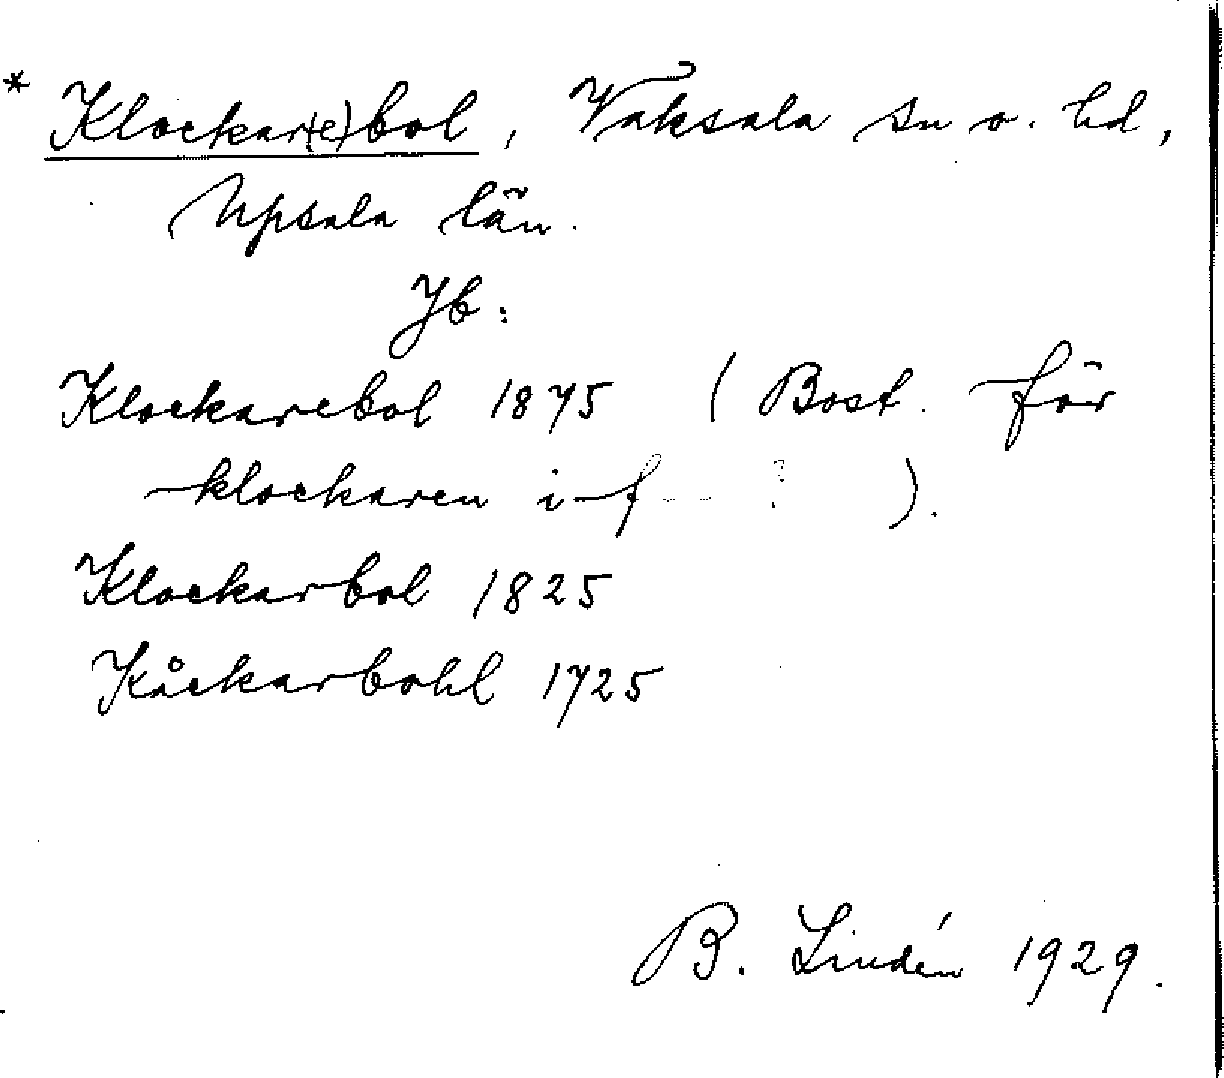 * Klockar(e)bol, Vaksala sn o. hd,
Upsala län.
Jb:
Klockarebol 1875 (Bost. för
klockaren i f-- ? ).
Klockarbol 1825
Kåckarbohl 1725
B. Lindén 1929.